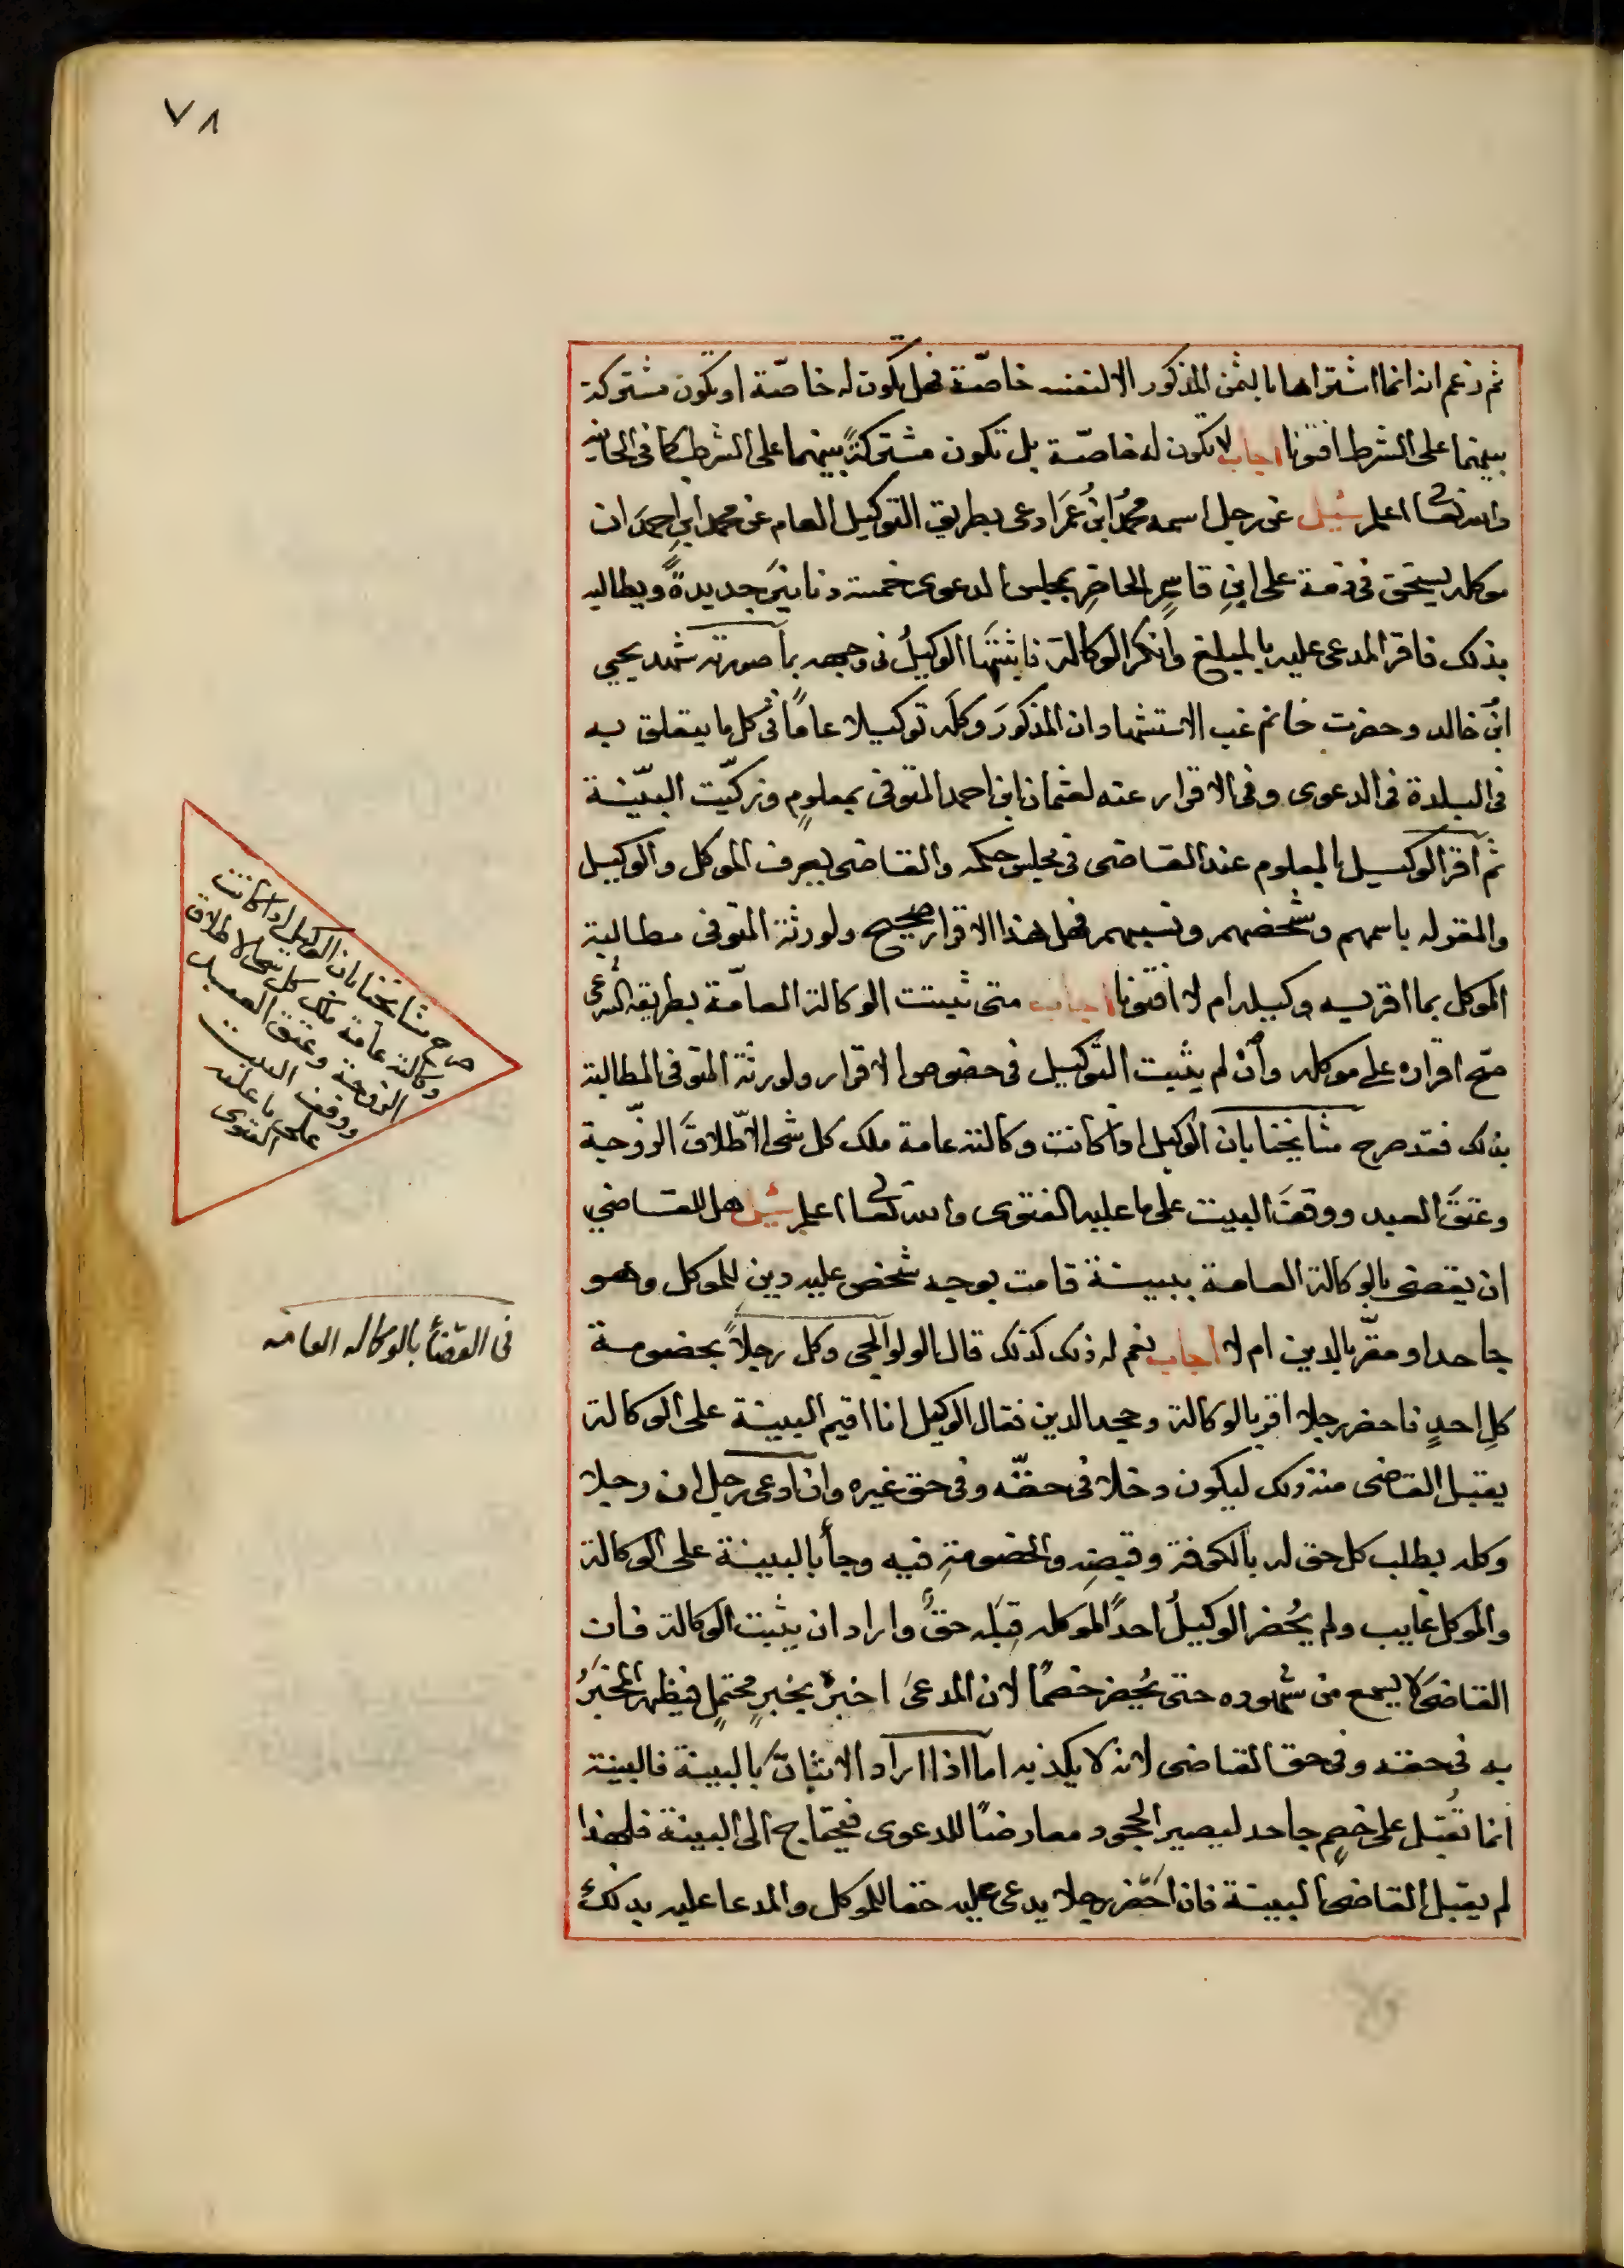 ٧٨
ثم زعم انه انما اشتراها بالثمن المذكور الا لنفسه خاصّة فهل تكون له خاصّة او تكون مشتركة
بينهما على الشرط افتونا اجاب لا تكون له خاصّة بل تكون مشتركةً بينهما على الشرط كما فى الخانيه
والله تعالى اعلم سُئِل عن رجل اسمه محمدُ ابنُ عُمَر ادعى بطريق التوكيل العام عن محمد ابنِ احمدَ ان
موكله يستحق فى ذمة على ابنِ قاسمٍ الحاضرِ بمجلس الدعوى خمسة دنانيرَ جديدةً ويطالبه
بذلك فاقر المدعى عليه بالمبلغ وانكر الوكالة فاثبتَها الوكيلُ فى وجهه بما صورته شهد يحيى
ابنُ خالد وحضرت خانم غب الاستشهاد ان المذكورَ وكلَه توكيلا عامًا فى كل ما يتعلق به
فى البلدة فى الدعوى وفى الاقرار عنه لعثمان ابن احمد المتوفى بمعلومٍ وزكّيت البيّنة
ثم اقر الوكيل بالمعلوم عند القاضى فى مجلس حكمه والقاضى يعرف الموكل والوكيل
والمقوله باسمهم وشخصهم ونسبهم فهل هذا الاقرار صحيح ولورثة المتوفى مطالبة
الموكل بما اقر به وكيله ام لا افتونا اجاب متى ثبتت الوكالة العامّة بطريقه الشرعى
صحّ اقراره على موكله وان لم يثبت التوكيل فى خصوص الاقرار ولورثة المتوفى المطالبة
بذلك فقد صرح مشايخنا بان الوكيل اذا كانت وكالته عامة ملك كل شى الا طلاقَ الزوجة
وعتقَ العبد ووقفَ البيت على ما عليه الفتوى والله تعالى اعلم سُئِل هل للقاضي
ان يقضى بالوكالة العامة ببينة قامت بوجه شخص عليه دين للموكل وهو
جاحد او مقرّ بالدين ام لا اجاب نعم له ذلك كذلك قال الولوالجى وكل رجلاً بخصومة
كلِ احدٍ فاحضر رجلا اقر بالوكالة وجحد الدين فقال الوكيل انا اقيم البينة على الوكالة
يقبل القاضى منه ذلك ليكون دخلا فى حقّه وفى حق غيره وان ادعى رجل ان رجلا
وكله بطلب كل حق له بالكوفة وقبضِه والخصومةِ فيه وجأ بالبينة على الوكالة
والموكل غايب ولم يُحضر الوكيلُ احدًا لموكله قِبَله حقٌ واراد ان يثبت الوكالة فان
القاضىَ لا يسمع من شهوده حتى يُحضر خصمًا لان المدعىَ اخبرَ بخبرٍ محتملٍ فيظهر المخبَرُ
به فى حقه وفى حق القاضى لانه لا يكذبه اما اذا اراد الاثباتَ بالبينة فالبينة
انما تُقبل على خصمٍ جاحد ليصير الجحود معارضًا للدعوى فيحتاج الى البينة فلهذا
لم يقبل القاضى البينة فان احضر رجلا يدعى عليه حقا للموكل والمدعا عليه بذلك
صرح مشايخنا بان الوكيل اذا كانت
وكالته عامة ملك كل شى الا طلاق
الزوجة وعتق العبد
ووقف البيت
على ما عليه
الفتوى
فى القضأ بالوكاله العامه